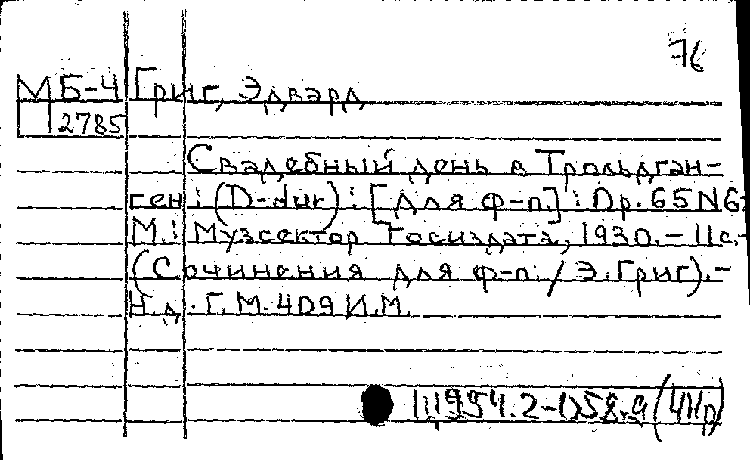 76
МБ-4 Григ, Эдвард
2785
Свадебный день в Трольдган-
ген: (D-dur): [для ф-п]: Op. 65 N6:
М.: Музсектор Госиздата, 1930.- 11с.-
(Сочинения для ф-п. / Э. Григ).-
Н.д. Г.М. 409 И.М.